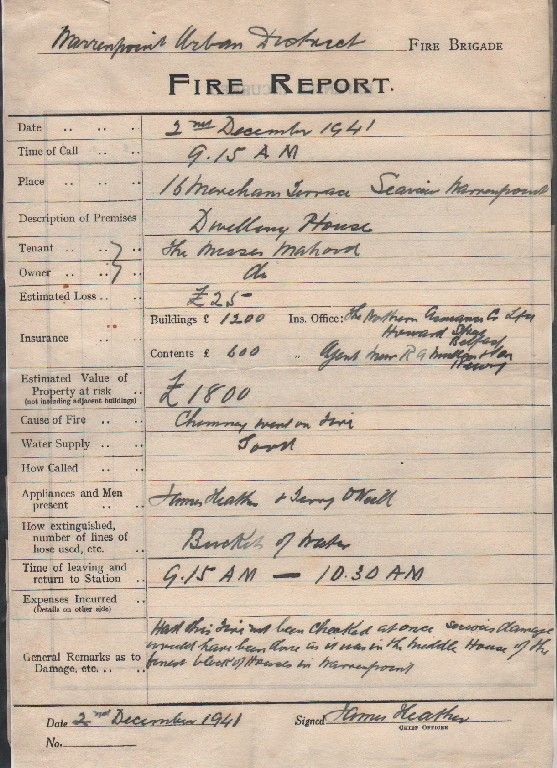 Warrenpoint Urban District FIRE BRIGADE
FIRE REPORT.
Date .. .. .. 2nd December 1941
Time of Call .. .. 9.15 A M
Place .. .. .. 16 Terrace Seaview Warrenpoint
Description of Premises Dwelling House
Tenant .. .. The Misses
Owner .. .. do
Estimated Loss .. .. £25
Insurance .. .. Buildings £ 1200 Ins. Office: The Northern Assurance Co Ltd
Howard Street
Belfast
Contents £ 600 „ Agent R G & Son
Newry
Estimated Value of
Property at risk ..
(not including adjacent buildings) £ 1800
Cause of Fire .. .. Chimney went on fire
Water Supply .. .. Good
How Called .. ..
Appliances and Men
present .. .. James Heather & Terry O'Neill
How extinguished,
number of lines of
hose used, etc. .. Buckets of Water
Time of leaving and
return to Station .. 9.15 AM — 10.30 AM
Expenses Incurred ..
(Details on other side)
General Remarks as to
Damage, etc. .. ..
Had this fire not been checked at once serious damage
would have been done as it was in the Middle House of the
finest block of Houses in Warrenpoint
Date 2nd December 1941 Signed James Heather
CHIEF OFFICER
No.